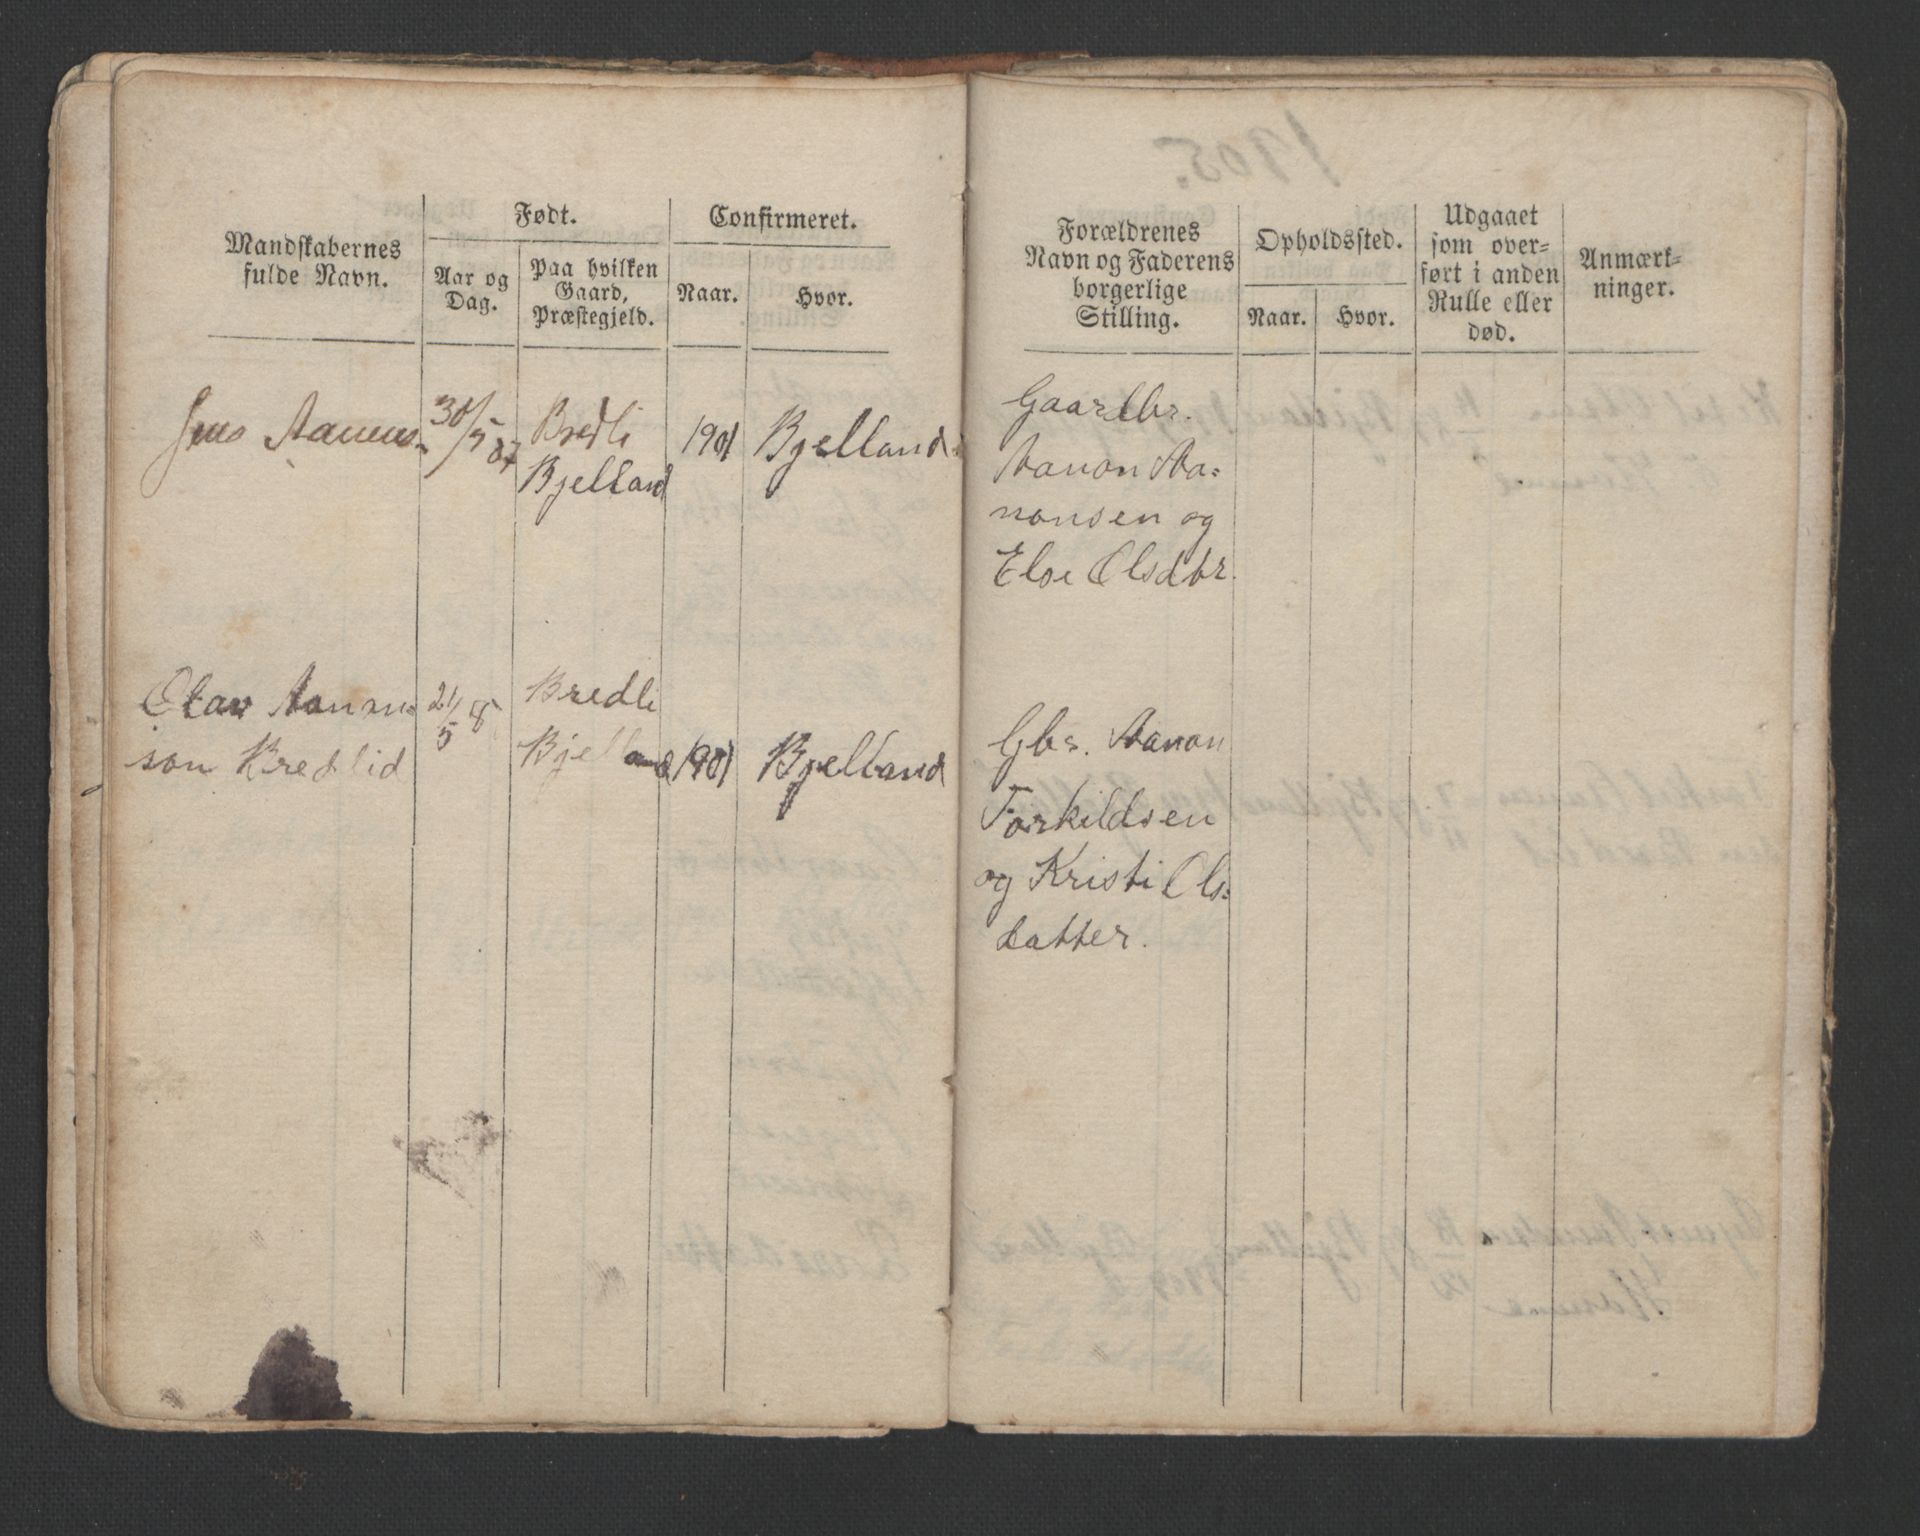 Mandskabernes
fulde Navn.
Født.
Aar og
Dag.
Paa hvilken
Gaard,
Præstegjeld.
Confirmeret.
Naar.
Hvor.
Jens Aanens
30/5 87
Bredli
Bjelland
1901
Bjelland
Olav Aanun
son Bredlid
21/5 8
Bredli
Bjelland
1901
Bjelland
1905.
Forældrenes
Navn og Faderens
borgerlige
Stilling.
Opholdssted.
Naar.
Hvor.
Udgaaet
som over-
ført i anden
Rulle eller
død.
Anmærk-
ninger.
Gaardbr.
Aanon Aa-
nonsen og
Else Olsdtr.
Gbr. Aanon
Torkildsen
og Kristi Ols-
datter.